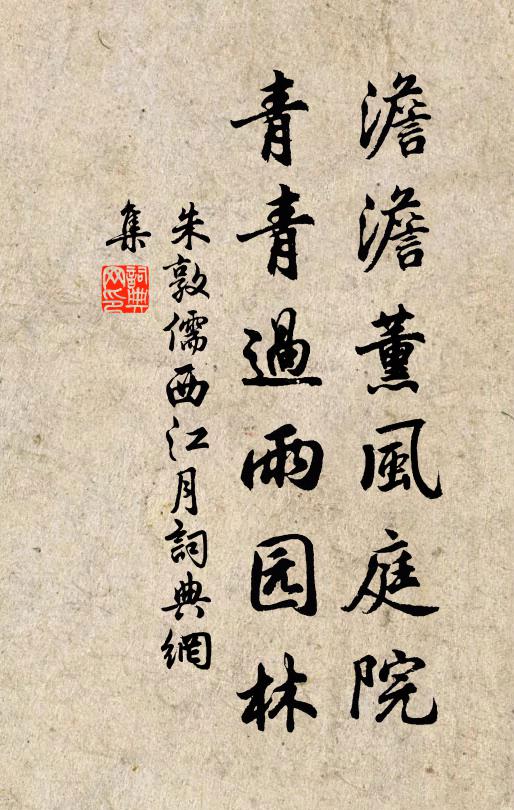 澹澹薰風庭院
青青過雨园林
朱敦儒西江月詞典網
集
詞典網印